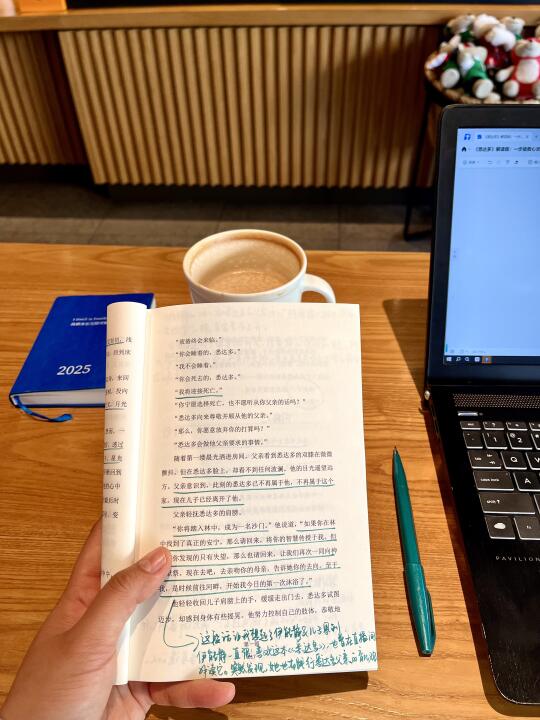 2025
"夜将终会来临。"
"你会睡着的，悉达多。"
"我不会睡着。"
"你会死去的，悉达多。"
"我将迎接死亡。"
"你宁愿选择死亡，也不愿听从你父亲的话吗？"
"悉达多向来尊敬并顺从他的父亲。"
"那么，你愿意放弃你的打算吗？"
"悉达多会做他父亲要求的事情。"
随着第一缕晨光洒进房间，父亲看到悉达多的双膝在微微
颤抖。但在悉达多脸上，却看不到任何波澜。他的目光遥望远
方。父亲意识到，此刻的悉达多已不再属于他，不再属于这个
家，现在儿子已经离开了他。
父亲轻抚悉达多的肩膀。
"你将踏入林中，成为一名沙门。"他说道，"如果你在林
中找到了真正的安宁，那么请回来，将你的智慧传授于我，但
你发现的只有失望，那么也请回来，让我们再次一同向神
献祭。现在去吧，去亲吻你的母亲，告诉她你的去向。至于
我，是时候前往河畔，开始我今日的第一次沐浴了。"
他轻轻收回儿子肩膀上的手，缓缓走出门去。悉达多试图
迈步，却感到身体有些摇晃。他努力控制自己的肢体，恭敬地
这段话让我想起了伊能静
伊能静一直很喜欢这本《悉达多》，也曾在直播间
突然发现，她也在践行悉达多父亲的
《悉达多》解读版：一步
PAVILION